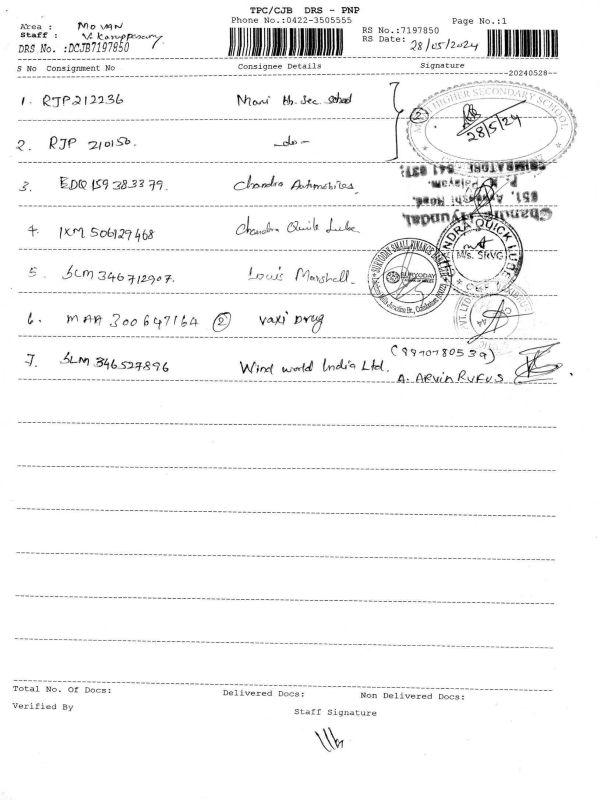 TPC/CJB DRS - PNP
Phone No.:0422-3505555
Page No.:1
Area : MO VAN
Staff : V. Karuppasamy
RS No.:7197850
RS Date: 28/05/2024
DRS No. :DCJB7197850
S No Consignment No Consignee Details Signature
--20240528--
1. RJP212236 Mani Hr. Sec. School (2)
MANI HIGHER SECONDARY SCHOOL
28/5/24
2. RJP 210150. -do-
3. EDQ 159383379. Chandra Automobiles,
Chandra Hyundai,
P. N. Palayam,
COIMBATORE - 641 037.
4. IXM 506127468 Chandra Quik Lube
CHANDRA QUICK LUBE
M/s. SRVG
CBE
5. SLM 346712907. Louis Marshell.
SURYODAY SMALL FINANCE BANK LTD
SURYODAY
6. MAA 300647164 (2) Vaxi Drug
7. SLM 346527896 Wind world India Ltd. (8970780539)
A. ARVIN RUFUS
Total No. Of Docs: Delivered Docs: Non Delivered Docs:
Verified By Staff Signature